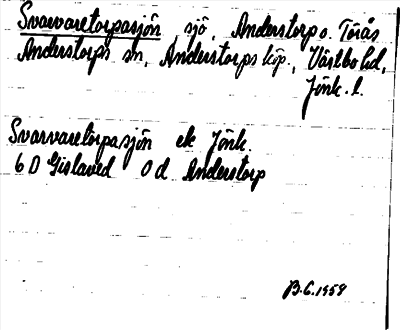 Svarvaretorpasjön, sjö, Anderstorp o. Törås
Anderstorps sn, Anderstorps köp., Västbo hd,
Jönk. l.
Svarvaretorpasjön ek Jönk.
6 D Gislaved 0 d Anderstorp
B.G. 1959